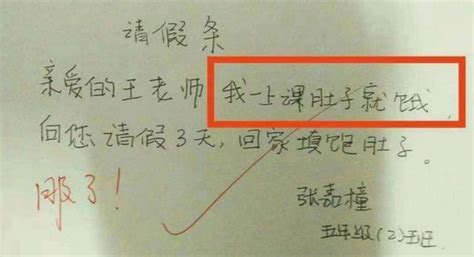 请假条
亲爱的王老师,我一上课肚子就饿,
向您请假3天,回家填饱肚子。
服了!
张嘉橦
五年级(2)班